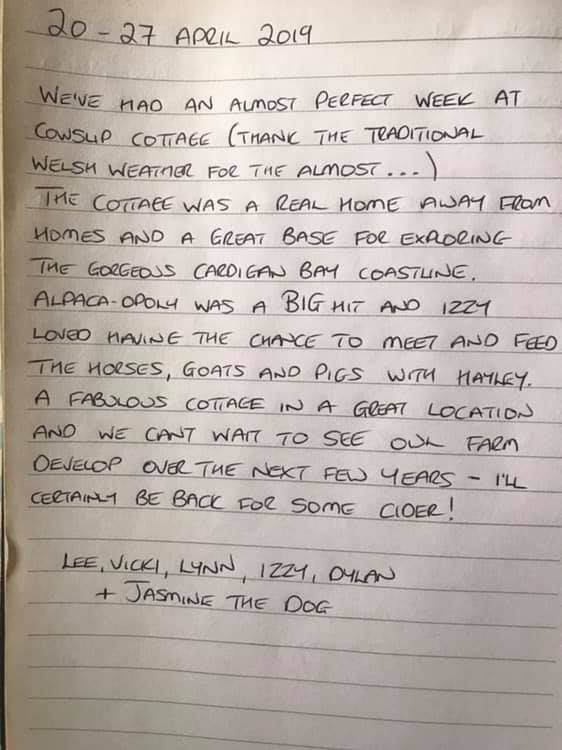 20 - 27 APRIL 2019
WE'VE HAD AN ALMOST PERFECT WEEK AT
COWSLIP COTTAGE (THANK THE TRADITIONAL
WELSH WEATHER FOR THE ALMOST...)
THE COTTAGE WAS A REAL HOME AWAY FROM
HOMES AND A GREAT BASE FOR EXPLORING
THE GORGEOUS CARDIGAN BAY COASTLINE.
ALPACA-OPOLY WAS A BIG HIT AND IZZY
LOVED HAVING THE CHANCE TO MEET AND FEED
THE HORSES, GOATS AND PIGS WITH HAYLEY.
A FABULOUS COTTAGE IN A GREAT LOCATION
AND WE CANT WAIT TO SEE OWL FARM
DEVELOP OVER THE NEXT FEW YEARS - I'LL
CERTAINLY BE BACK FOR SOME CIDER!
LEE, VICKI, LYNN, IZZY, DYLAN
+ JASMINE THE DOG